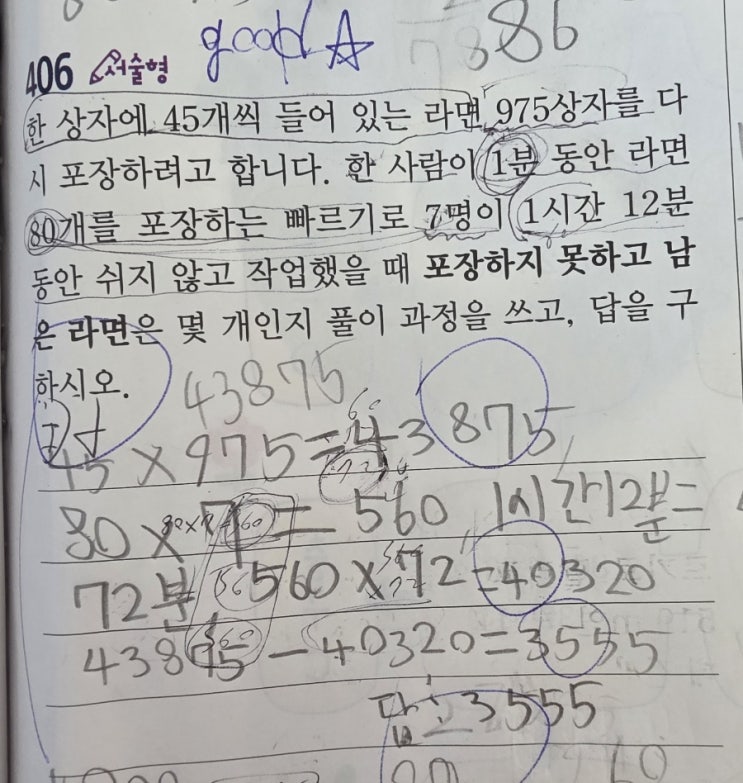 good ☆
86
406 서술형
한 상자에 45개씩 들어 있는 라면 975상자를 다
시 포장하려고 합니다. 한 사람이 1분 동안 라면
80개를 포장하는 빠르기로 7명이 1시간 12분
동안 쉬지 않고 작업했을 때 포장하지 못하고 남
은 라면은 몇 개인지 풀이 과정을 쓰고, 답을 구
하시오.
43875
45×975=43875
80×7=560 1시간12분=
72분 560×72=40320
43875-40320=3555
답: 3555